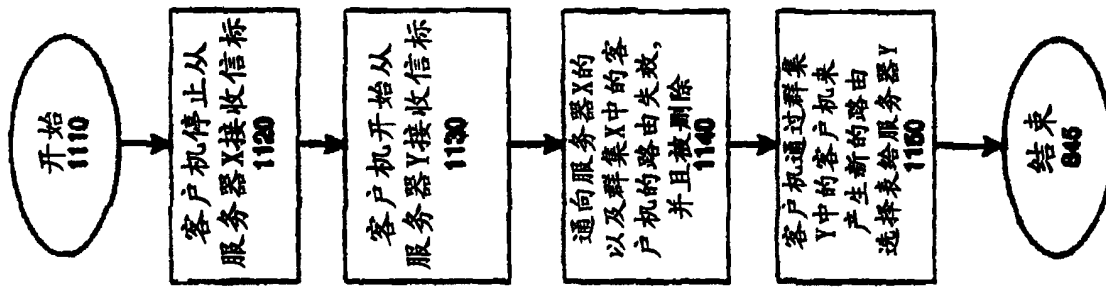 开始
1110
客户机停止从
服务器X接收信标
1120
客户机开始从
服务器Y接收信标
1130
通向服务器X的
以及群集X中的客
户机的路由失效,
并且被删除
1140
客户机通过群集
Y中的客户机来
产生新的路由
选择表给服务器Y
1150
结束
845